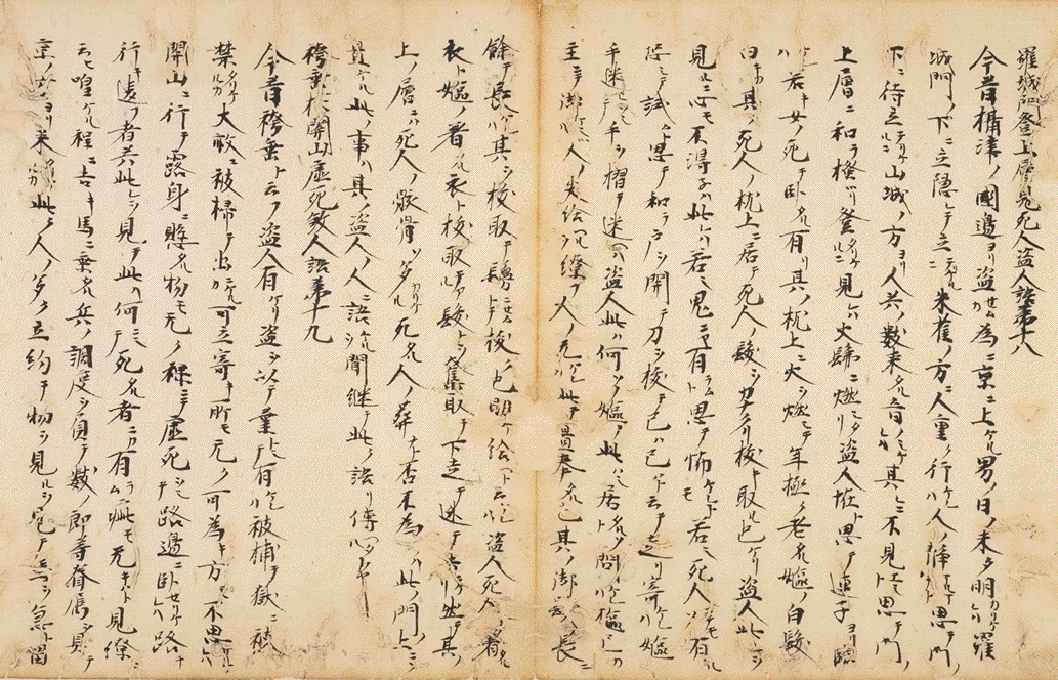 羅城門登上層見死人盗人語第十八
今昔攝津ノ國邊ヨリ盗セムカ為ニ京ニ上ケル男ノ日ノ未タ明カリケレハ羅
城門ノ下ニ立隠レテ立テリケルニ朱雀ノ方ニ人重ク行ケレハ人ノ静マルマテト思テ門ノ
下ニ待立テリケルニ山城ノ方ヨリ人共ノ数来タル音ノシケレハ其レニ不見エシト思テ門ノ
上層ニ和ラ搔ツリ登タリケルニ見レハ火髴ニ燃シタリ盗人怪ト思テ連子ヨリ臨
ケレハ若キ女ノ死テ臥タル有リ其ノ枕上ニ火ヲ燃シテ年極ク老タル嫗ノ白髪
白キカ其ノ死人ノ枕上ニ居テ死人ノ髪ヲカナクリ抜キ取ル也ケリ盗人此レヲ
見ルニ心モ不得ネハ此レハ若シ鬼ニヤ有ラムト思テ怖ケレトモ若シ死人ニテモソ有ル
恐シテ試ムト思テ和ラ戸ヲ開テ刀ヲ抜テ己ハ己ハト云テ走リ寄ケレハ嫗
手迷ヒヲシテ手ヲ摺テ迷ヘハ盗人此ハ何ソノ嫗ノ此ハシ居タルソト問ケレハ嫗己カ
主ニテ御マシツル人ノ失給ヘルヲ繚フ人ノ无ケレハ此テ置奉タル也其ノ御髪ノ長ニ
餘テ長ケレハ其ヲ抜取テ鬘ニセムトテ抜ク也助ケ給ヘト云ケレハ盗人死人ノ着タル
衣ト嫗ノ着タル衣ト抜取テアル髪トヲ奪取テ下走テ迯テ去ニケリ然テ其ノ
上ノ層ニハ死人ノ骸骨ソ多カリケル死タル人ノ葬ナト否不為ヲハ此ノ門ノ上ニソ
置ケル此ノ事ハ其ノ盗人ノ人ニ語ケルヲ聞継テ此ク語リ傳ヘタルトヤ
袴垂於關山虚死殺人語第十九
今昔袴垂ト云フ盗人有ケリ盗ヲ以テ業トシテ有ケレハ被捕テ獄ニ被
禁タリケルカ大赦ニ被掃テ出ニケルカ可立寄キ所モ无ク可為キ方モ不思サリケレハ
關山ニ行テ露身ニ懸タル物モ无ク裸ニテ虚死ヲシテ路邊ニ臥セリケレハ路チ
行違フ者共此レヲ見テ此ハ何ニシテ死タル者ニカ有ラム疵モ无キハト見繚
云ヒ喤ケル程ニ吉キ馬ニ乗タル兵ノ調度ヲ負テ数ノ郎等眷属ヲ具シテ
京ノ方ヨリ来ケルカ此ク人ノ多ク立約テ物ヲ見ルヲ見テ馬ヲ急ト留